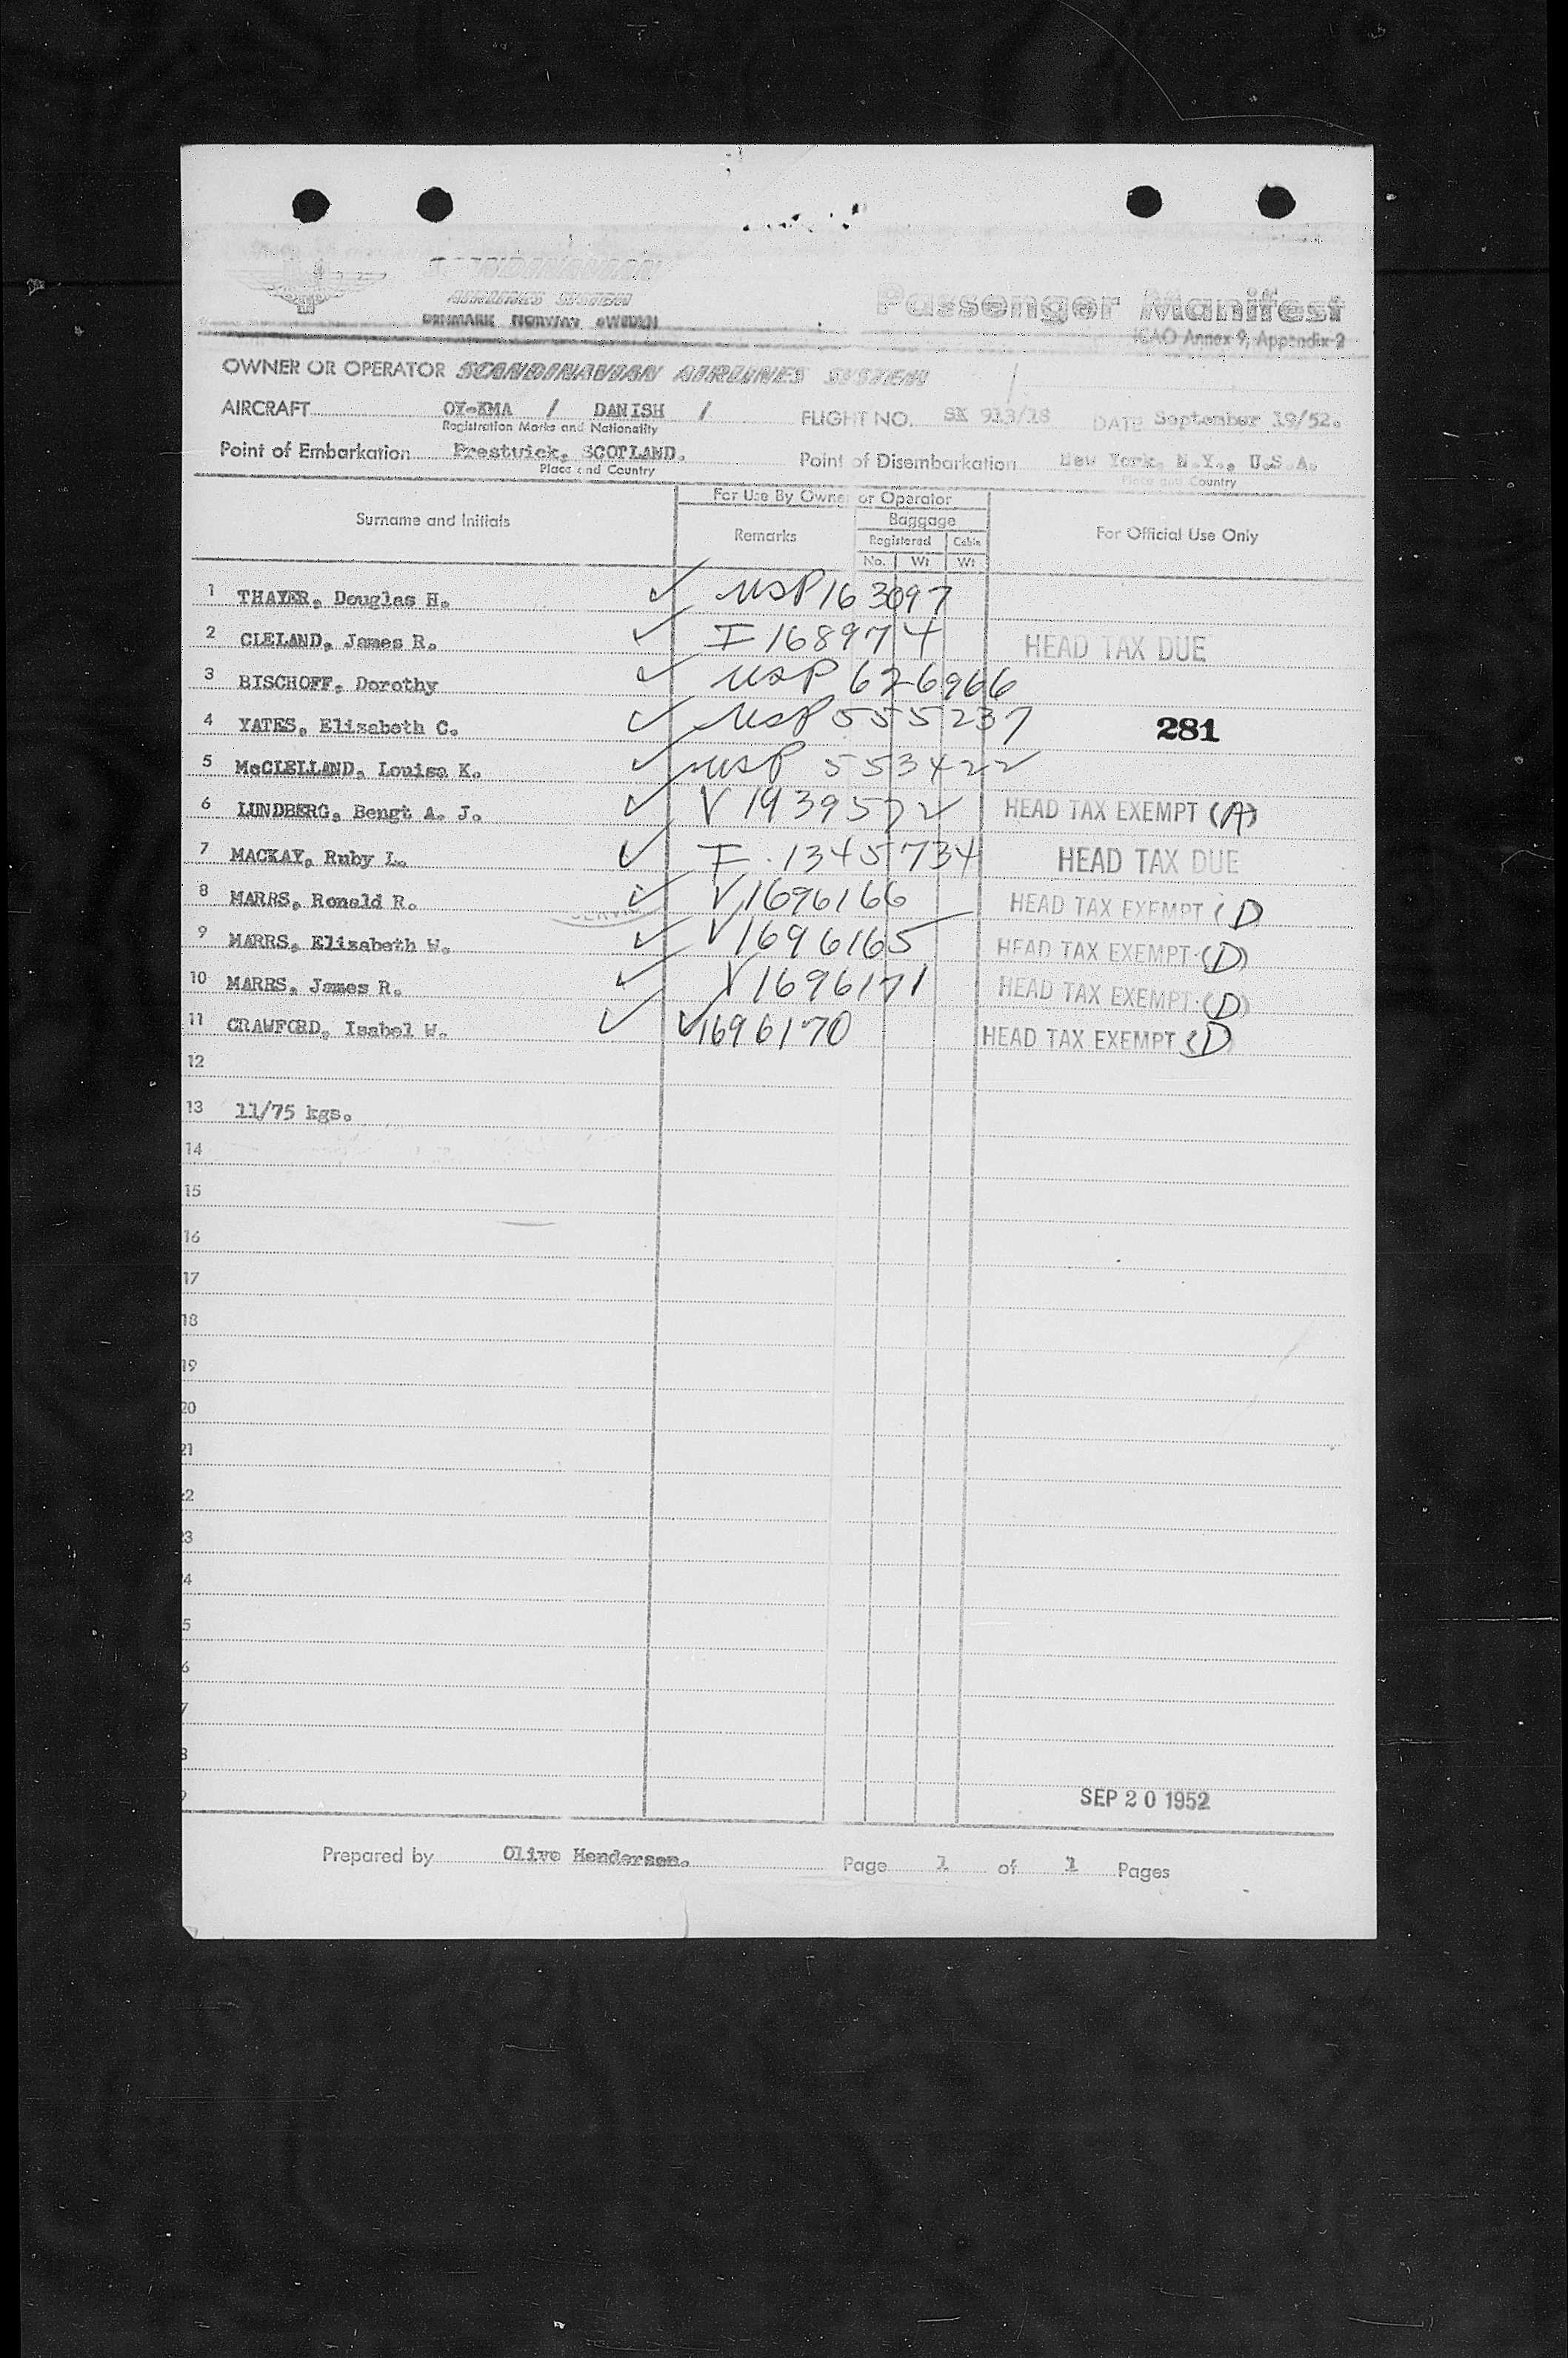 SCANDINAVIAN
AIRLINES SYSTEM
DENMARK NORWAY SWEDEN
Passenger Manifest
ICAO Annex 9, Appendix 2
OWNER OR OPERATOR SCANDINAVIAN AIRLINES SYSTEM
AIRCRAFT OY-KMA / DANISH / FLIGHT NO. SK 913/18 DATE September 19/52.
Registration Marks and Nationality
Point of Embarkation Prestwick, SCOTLAND. Point of Disembarkation New York, N.Y., U.S.A.
Place and Country Place and Country
For Use By Owner or Operator
Surname and Initials Remarks Baggage For Official Use Only
Registered Cabin
No. Wt Wt
1 THAYER, Douglas H. ✓ USP 163097
2 CLELAND, James R. ✓ I 168974 HEAD TAX DUE
3 BISCHOFF, Dorothy ✓ USP 626966
4 YATES, Elizabeth C. ✓ USP 555237 281
5 McCLELLAND, Louisa K. ✓ USP 553422
6 LUNDBERG, Bengt A. J. ✓ V 1939572 HEAD TAX EXEMPT (A)
7 MACKAY, Ruby L. ✓ I. 1345734 HEAD TAX DUE
8 MARRS, Ronald R. ✓ V 1696166 HEAD TAX EXEMPT (D)
9 MARRS, Elizabeth W. ✓ V 1696165 HEAD TAX EXEMPT (D)
10 MARRS, James R. ✓ V 1696171 HEAD TAX EXEMPT (D)
11 CRAWFORD, Isabel W. ✓ V 1696170 HEAD TAX EXEMPT (D)
12
13 11/75 kgs.
14
15
16
17
18
19
20
21
2
3
4
5
6
7
8
9
SEP 20 1952
Prepared by Olive Henderson. Page 1 of 1 Pages